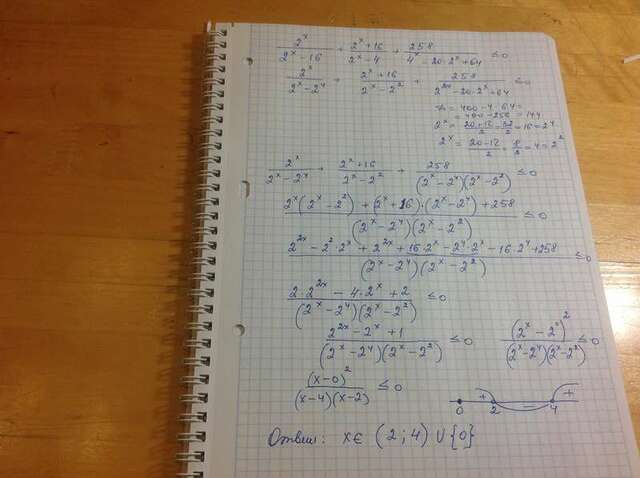 2^x/(2^x - 16) + (2^x + 16)/(2^x - 4) + 258/(4^x - 20·2^x + 64) ≤ 0
2^x/(2^x - 2^4) + (2^x + 16)/(2^x - 2^2) + 258/(2^{2x} - 20·2^x + 64) ≤ 0
= 400 - 4·64 =
= 400 - 256 = 144
2^x = (20+12)/2 = 32/2 = 16 = 2^4
2^x = (20-12)/2 = 8/2 = 4 = 2^2
2^x/(2^x - 2^4) + (2^x + 16)/(2^x - 2^2) + 258/((2^x - 2^4)(2^x - 2^2)) ≤ 0
(2^x(2^x - 2^2) + (2^x + 16)·(2^x - 2^4) + 258)/((2^x - 2^4)(2^x - 2^2)) ≤ 0
(2^{2x} - 2^2·2^x + 2^{2x} + 16·2^x - 2^4·2^x - 16·2^4 + 258)/((2^x - 2^4)(2^x - 2^2)) ≤ 0
(2·2^{2x} - 4·2^x + 2)/((2^x - 2^4)(2^x - 2^2)) ≤ 0
(2^{2x} - 2^x + 1)/((2^x - 2^4)(2^x - 2^2)) ≤ 0 (2^x - 2^0)^2/((2^x - 2^4)(2^x - 2^2)) ≤ 0
(x-0)^2/((x-4)(x-2)) ≤ 0
+ - +
0 2 4
Ответ: x∈ (2; 4) ∪ {0}